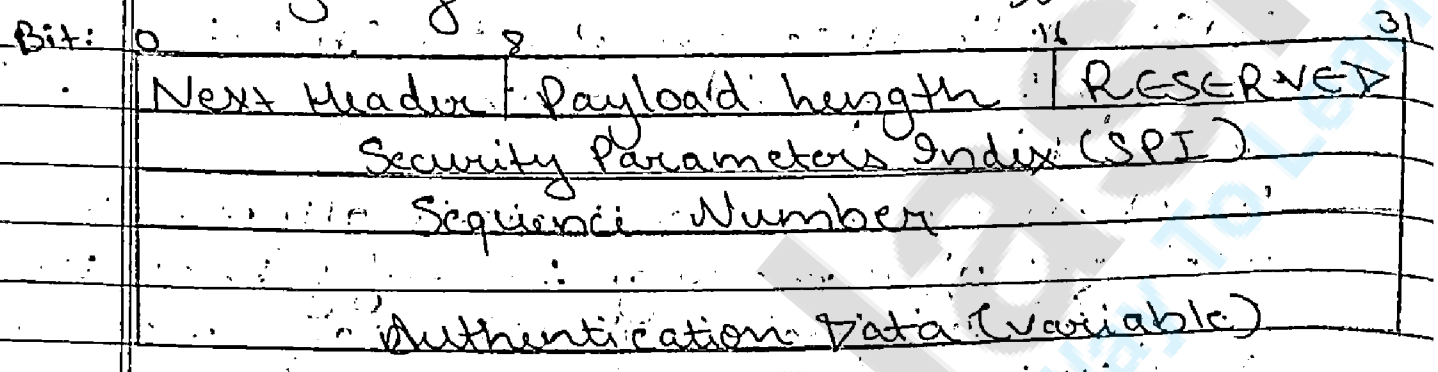 Bit: 0 8 16 31
Next Header Payload Length RESERVED
Security Parameters Index (SPI)
Sequence Number
Authentication Data (variable)